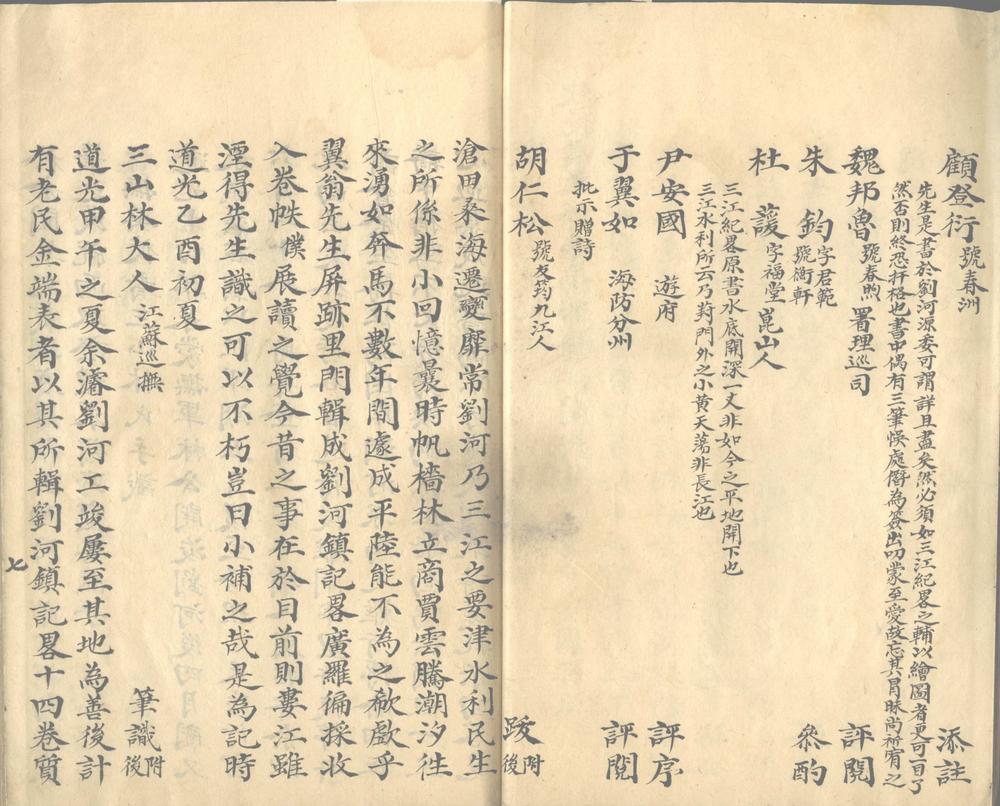 顧登衍 號春洲 添註
先生是書於劉河源委可謂詳且盡矣然必須如三江紀畧之輔以繪圖者更可一目了
然否則終恐扞格也書中偶有三筆悞處僭為簽出叨蒙至愛故忘其冒昧尚祈宥之
魏邦魯 號春煦 署理巡司 評閱
朱 鈞 字君範 號衡軒 叅酌
杜 諼 字福堂 崑山人
三江紀畧原書水底開深一丈非如今之平地開下也
三江水利所云乃葑門外之小黄天蕩非長江也
尹安國 遊府 評序
于翼如 海防分州 評閱
批示贈詩
胡仁松 號友筠九江人 跋 附後
滄田桑海遷變靡常劉河乃三江之要津水利民生
之所係非小回憶曩時帆檣林立商賈雲騰潮汐徃
來湧如奔馬不數年間遽成平陸能不為之欷歔乎
翼翁先生屏跡里門輯成劉河鎮記畧廣羅徧採收
入卷帙僕展讀之覺今昔之事在於目前則婁江雖
湮得先生識之可以不朽豈曰小補之哉是為記時
道光乙酉初夏
三山林大人 江蘇巡撫 筆識 附後
道光甲午之夏余濬劉河工竣屢至其地為善後計
有老民金端表者以其所輯劉河鎮記畧十四卷質
七